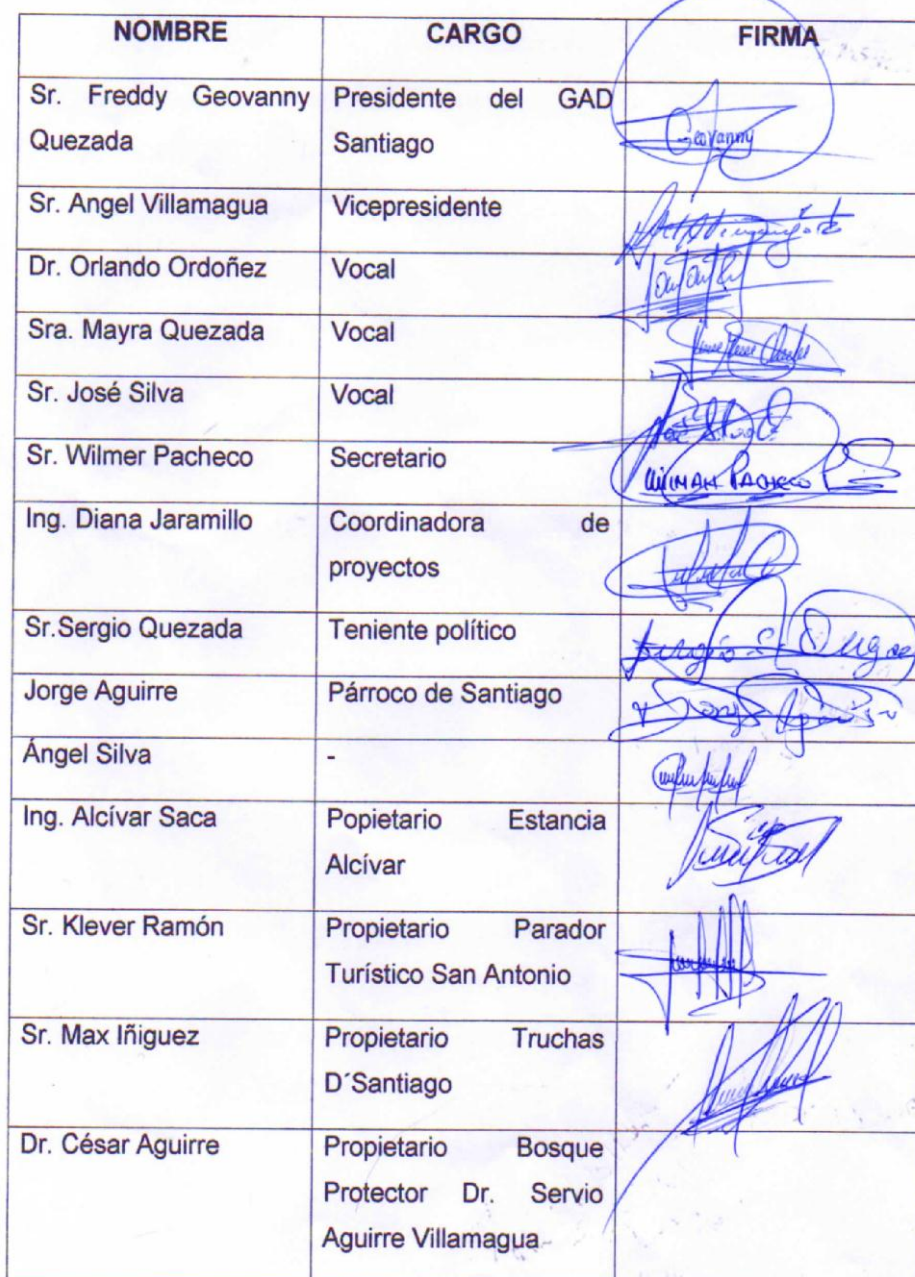 NOMBRE CARGO FIRMA
Sr. Freddy Geovanny Presidente del GAD
Quezada Santiago
Geovanny
Sr. Angel Villamagua Vicepresidente
Dr. Orlando Ordoñez Vocal
Sra. Mayra Quezada Vocal
Sr. José Silva Vocal
Sr. Wilmer Pacheco Secretario
PACHECO
Ing. Diana Jaramillo Coordinadora de
proyectos
Sr.Sergio Quezada Teniente político
Jorge Aguirre Párroco de Santiago
Ángel Silva -
Ing. Alcívar Saca Popietario Estancia
Alcívar
Sr. Klever Ramón Propietario Parador
Turístico San Antonio
Sr. Max Iñiguez Propietario Truchas
D´Santiago
Dr. César Aguirre Propietario Bosque
Protector Dr. Servio
Aguirre Villamagua